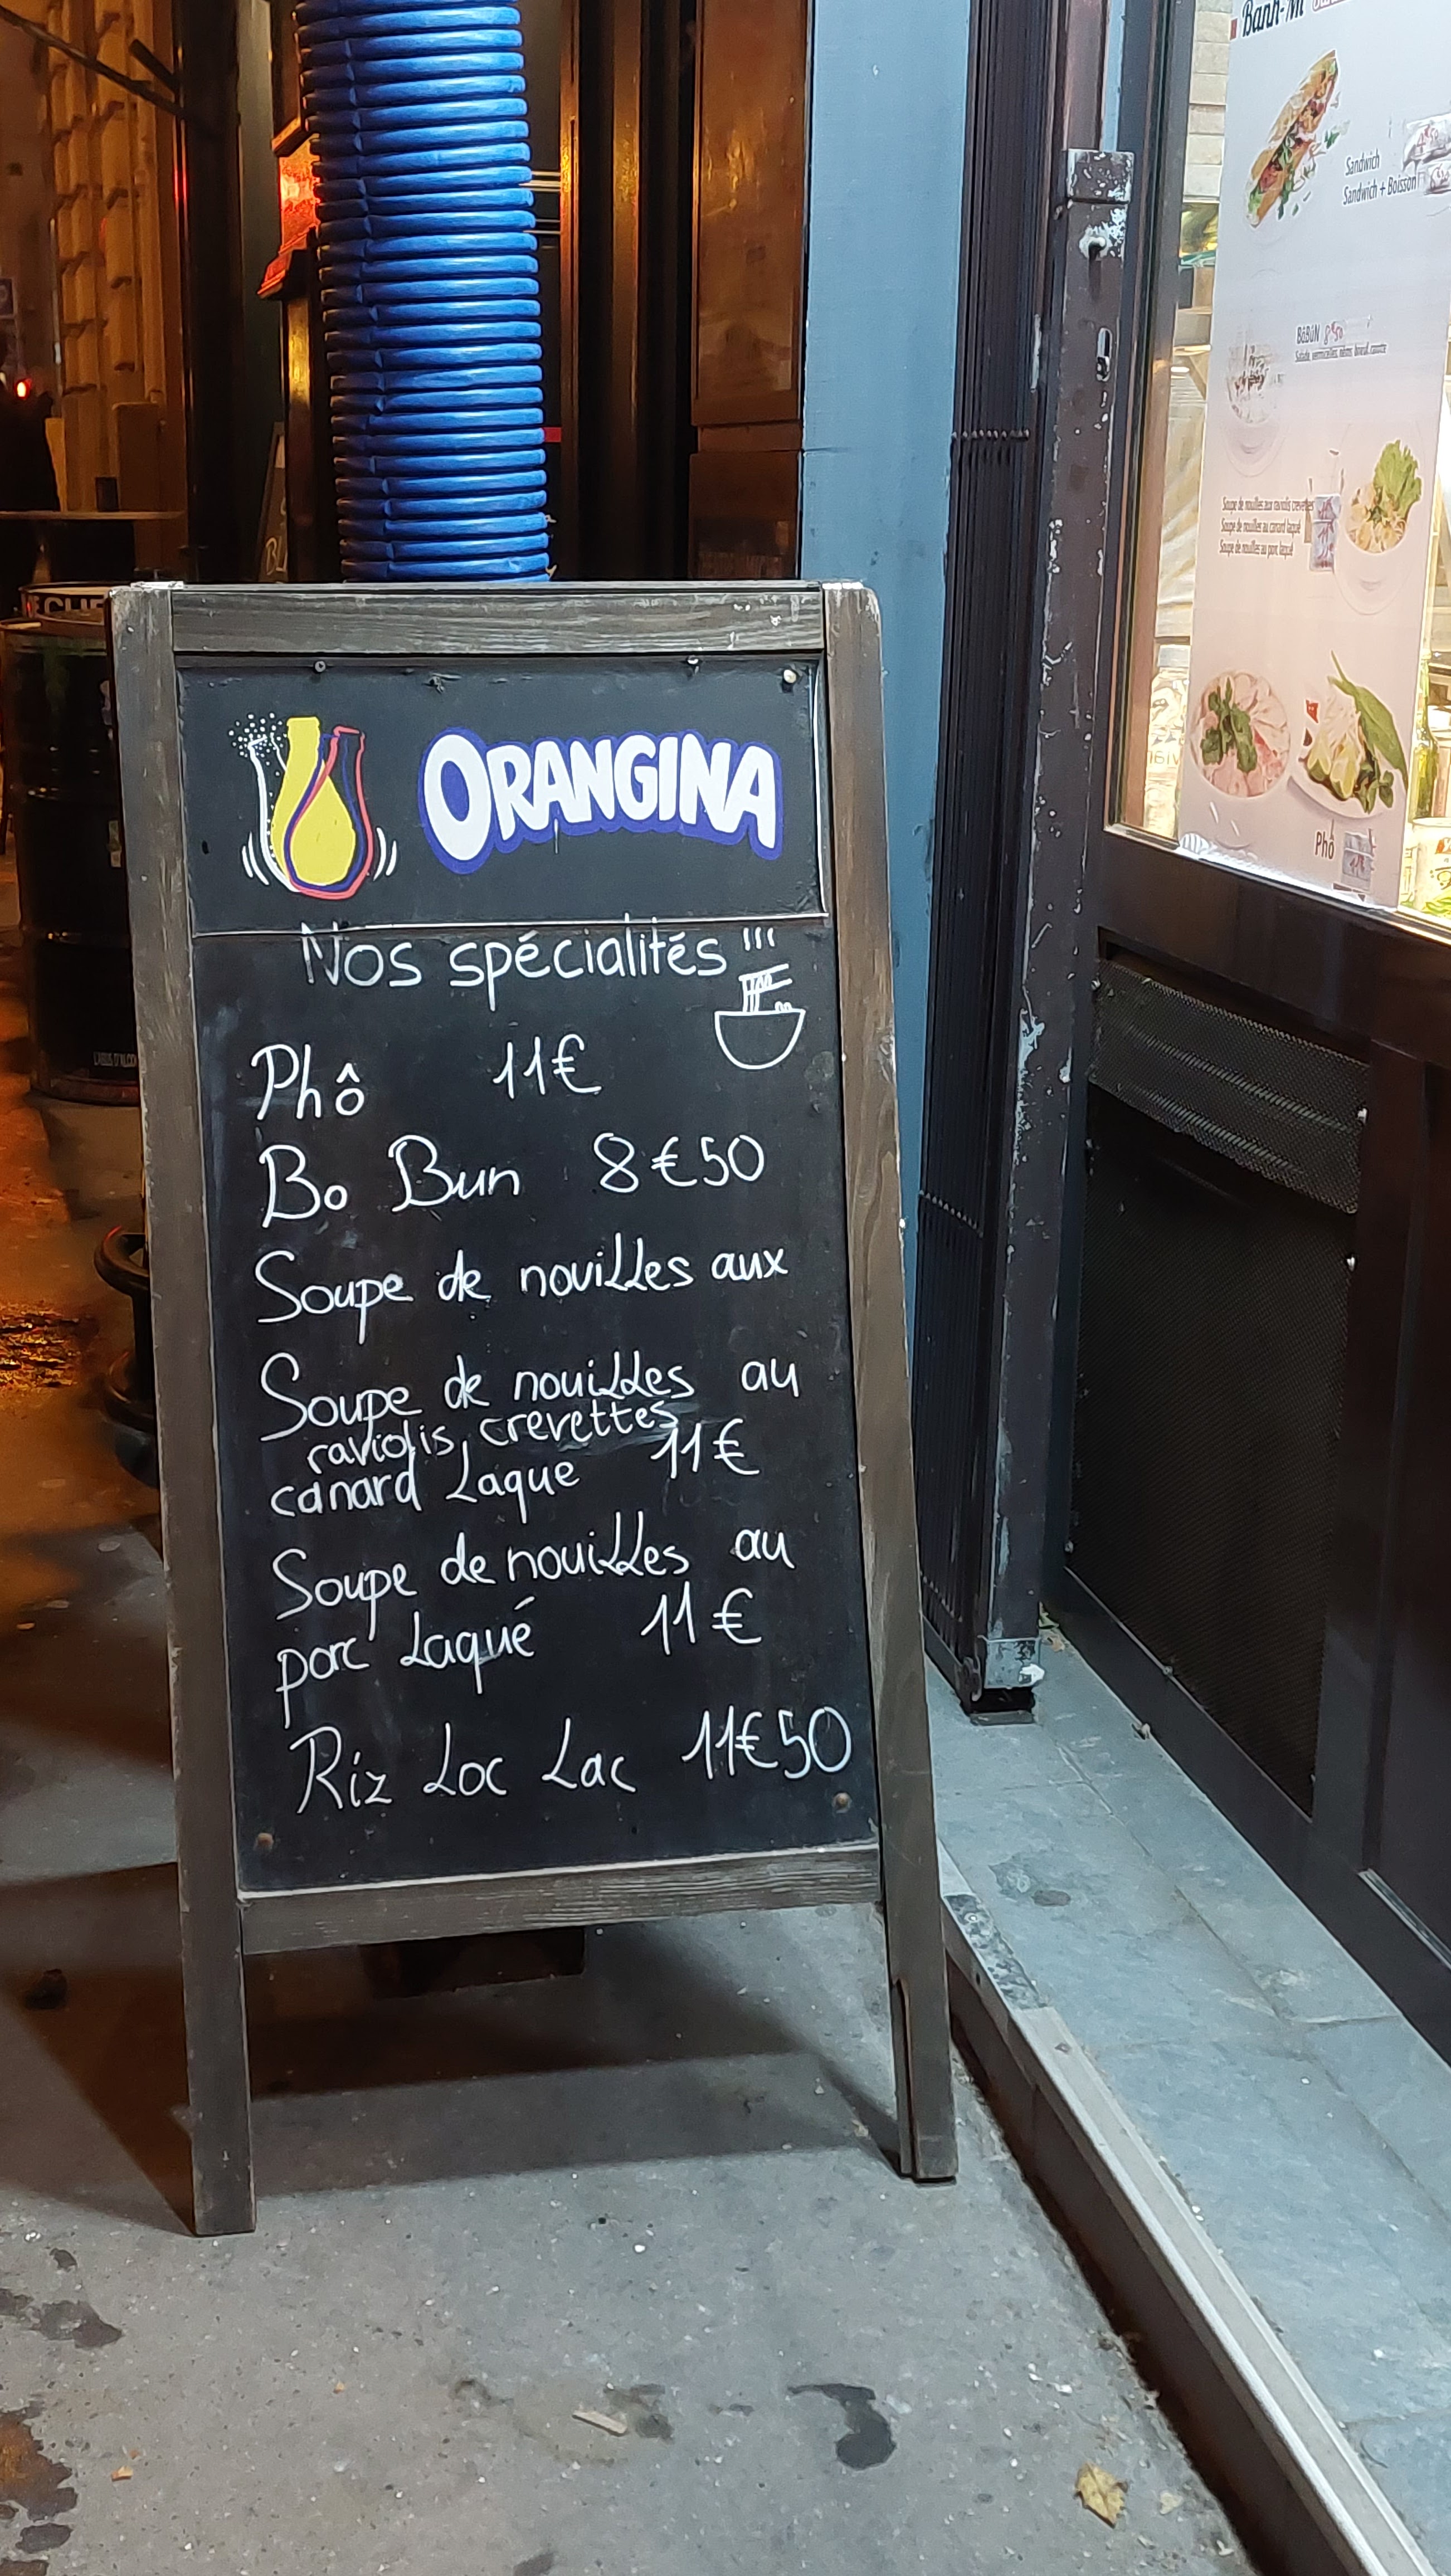 ORANGINA
Nos spécialités
Phô 11€
Bo Bun 8€50
Soupe de nouilles aux
Soupe de nouilles au
raviolis, crevettes
canard Laque 11€
Soupe de nouilles au
porc Laqué 11€
Riz Loc Lac 11€50
Banh-Mi
Sandwich
Sandwich + Boisson
BòBùN 8€50
Salade, vermicelles, néms, boeuf, carotte
Soupe de nouilles aux raviolis crevettes
Soupe de nouilles au canard laqué
Soupe de nouilles au porc laqué
Phô